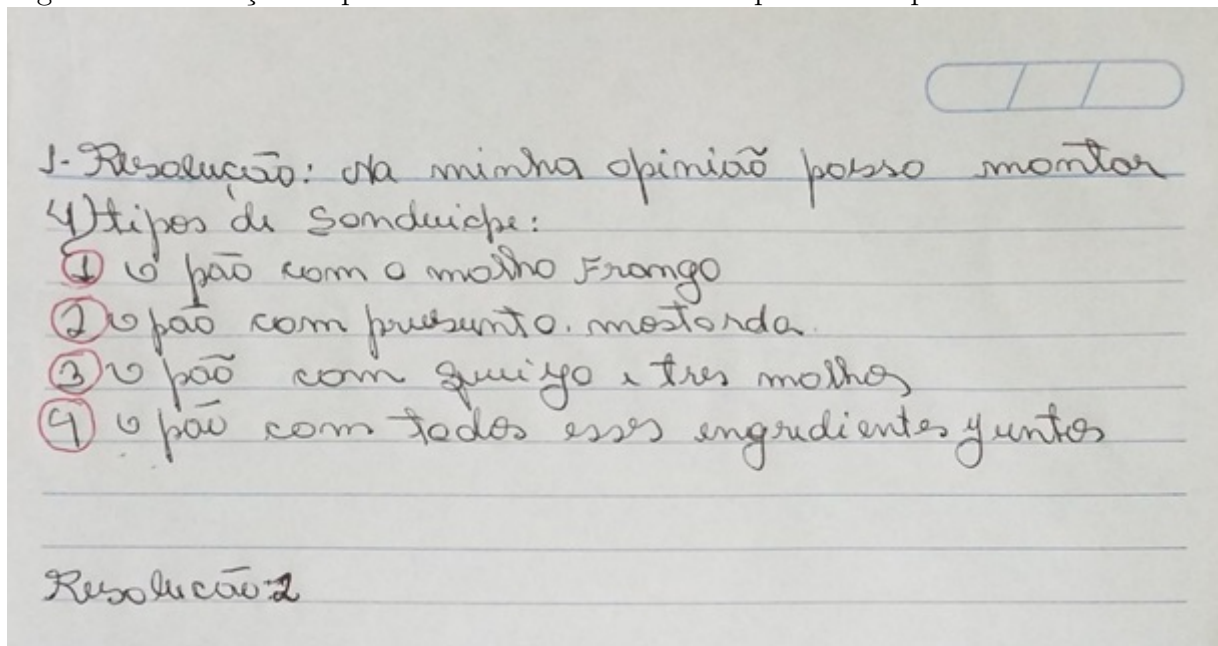 1- Resolução: Na minha opinião posso montar
4) tipos de Sonduiche:
① o pão com o molho Frango
② o pão com presunto. mostarda.
③ o pão com queiyo e tres molhos
④ o pão com todos esses engredientes yuntos
Resolucão:2